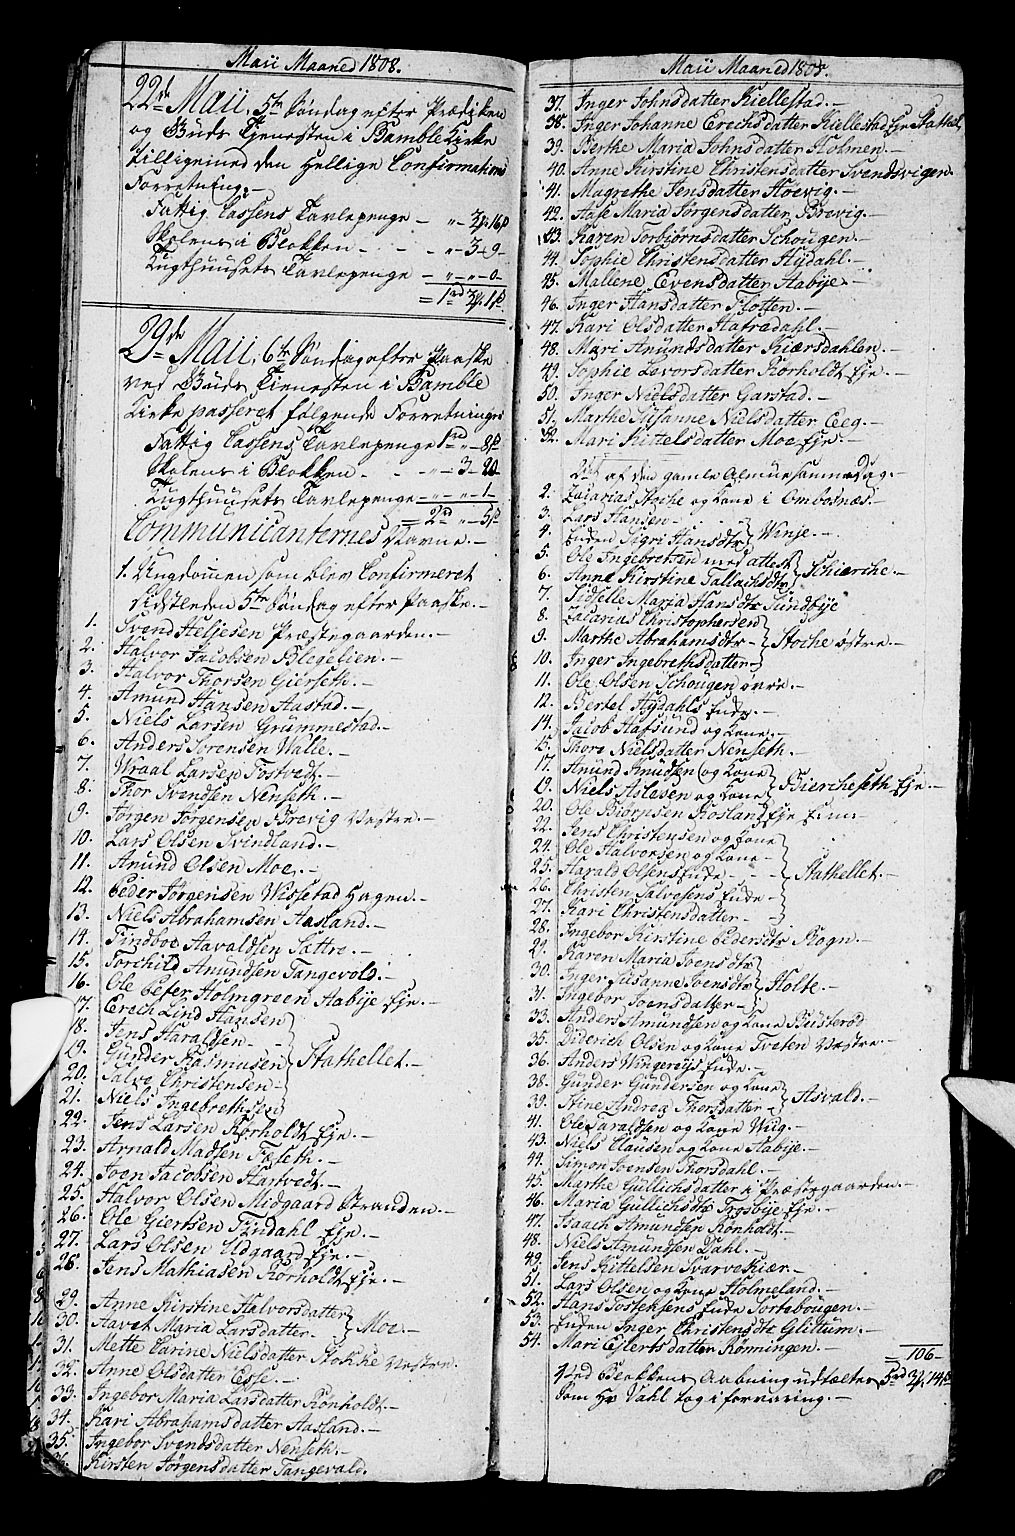 Maii Maaned 1808.
22de Maii, 5te Søndag efter Prædiken
og Guds Tienesten i Bamble Kirke
tilligemed den Hellige Confirmations
Forretning.-
Fattig Cassens Tavlepenge - " 3
Skolens i Blokken - - " - 3 - 9 -
Tugthuusets Tavlepenge - " - " - 0 -
29de Maii, 6te Søndag efter Paaske
ved Guds Tienesten i Bamble
Kirke passeret følgende Forretninger
Fattig Cassens Tavlepenge 1rd " - 8
Skolens i Blokken - - " - 3 - 20
Tugthuusets Tavlepenge - " - " - 1 -
= 2rd " - 5
Communicanternes Navne.-
1. Ungdommen som blev Confirmeret
sidstleden 5te Søndag efter Paaske.-
1. Svend Heljesen Præstegaarden.-
2. Halvor Jacobsen Blegelien.-
3. Halvor Thorsen Gierseth.-
4. Amund Hansen Aastad.-
5. Niels Larsen Grummestad.-
6. Anders Sørensen Walle.-
7. Wraal Larsen Tostvedt.-
8. Thor Svendsen Nenseth.-
9. Jørgen Jørgensen Brevig Vestre.-
10. Lars Olsen Svindland.-
11. Amund Olsen Moe.-
12. Peder Jørgensen Wissestad Hagen.-
13. Niels Abrahamsen Aasland.-
14. Findboe Aavaldsen Sattre.-
15. Torchild Amundsen Tangevold.-
16. Ole Peter Holmgreen Aabye Eje.-
17. Erech Lind Hansen
18. Jens Haraldsen -
19. Gunder Rasmusen Stathellet.-
20. Salve Christensen -
21. Niels Ingebrethsen
22. Jens Larsen Rørholdt Eje.-
23. Arnald Madsen Fæseth.-
24. Joen Jacobsen Hartvedt.-
25. Halvor Olsen Midgaard Stranden.-
26. Ole Giertsen Findahl Eje.-
27. Lars Olsen Udgaard Eje.-
28. Jens Mathiasen Rørholdt Eje.-
29. Anne Kirstine Halvorsdatter
30. Aavet Maria Larsdatter.- Moe.-
31. Mette Carine Nielsdatter Stokke Vestre.
32. Anne Olsdatter Esse.-
33. Ingebor Maria Larsdatter Rønholdt.-
34. Kari Abrahamsdatter Aasland.-
35. Ingebor Svendsdatter Nenseth.-
36. Kirsten Jørgensdatter Tangevald.
Maii Maaned 1808.
37. Inger Johnsdatter Kiellestad.-
38. Inger Johanne Erechsdatter Kiellestad Eje
39. Berthe Maria Johnsdatter Holmen.-
40. Anne Kirstine Christensdatter Svendsvigen.
41. Magrethe Jensdatter Hoevig.-
42. Aase Maria Jørgensdatter Brevig.-
43. Karen Torbiørnsdatter Schougen.-
44. Sophie Christensdatter Hydahl.-
45. Mallene Evensdatter Aabye.-
46. Inger Hansdatter Flotten.-
47. Kari Olsdatter Hafredahl.-
48. Mari Amundsdatter Kiærsdahlen.-
49. Sophie Levorsdatter Rørholdt Eje.-
50. Inger Nielsdatter Garstad.-
51. Marthe Susanne Nielsdatter Eeg.-
52. Mari Kittelsdatter Moe Eje.-
2det af den gamle Almue samme Dag.-
2. Zacarias Stoche og Kone i Ombosnæs.-
3. Lars Hansen -
4. Enken Sigri Hansdtr Winje.-
5. Ole Ingebretsen med attest
6. Anne Kirstine Tallachsdtr Schierche.-
7. Sidselle Maria Hansdtr Sundbye
8. Zacarias Christophersen
9. Marthe Abrahamsdtr - Stoche østre.-
10. Inger Ingebrethsdatter -
11. Ole Olsen Schougen øvre.-
12. Bertel Hydahls Enke.-
14. Jacob Hafsund og Kone.-
15. Thore Nielsdatter Nenseth.-
17. Amund Knudsen og Kone
19. Niels Aslesen og Kone Biercheseth Eje.-
20. Ole Biørnsen Rosland Eje
22. Jens Christensen og Kone
24. Ole Halvorsen og Kone -
25. Harald Olsens Enke - - Stathellet.-
26. Christen Salvesens Enke -
27. Kari Christensdatter -
28. Ingebor Kirstine Pedersdtr Rogn.-
29. Karen Maria Joensdtr
30. Inger Susanne Joensdtr Holte.-
31. Ingebor Joensdatter -
33. Anders Amundsen og Kone Bustrød
35. Diderich Olsen og Kone Tveten Vestre.-
36. Anders Wingereijs Enke.-
38. Gunder Gundersen og Kone
39. Stine Andrea Thorsdatter - Asvald.-
41. Ole Taraldsen og Kone Wiig.-
43. Niels Clausen og Kone Aabye.-
44. Simon Joensen Thorsdahl.-
45. Marthe Gullichsdatter i Præstegaarden.-
46. Maria Gullichsdtr Trosbye Eje.-
47. Isaach Amundsen Rønholt.-
48. Niels Amundsen Dahl.-
49. Jens Kittelsen Svarvekiær.-
51. Lars Olsen og Kone Holmeland.-
52. Hans Tostensens Enke Tortebougen.-
53. Enken Inger Christensdtr Glittum.-
54. Mari Ejlertsdatter Rønningen.-
= 106 -
Ved Blokkens Aabning udtaltes 5rd 3
som Hr Vahl tog i forvaring.-